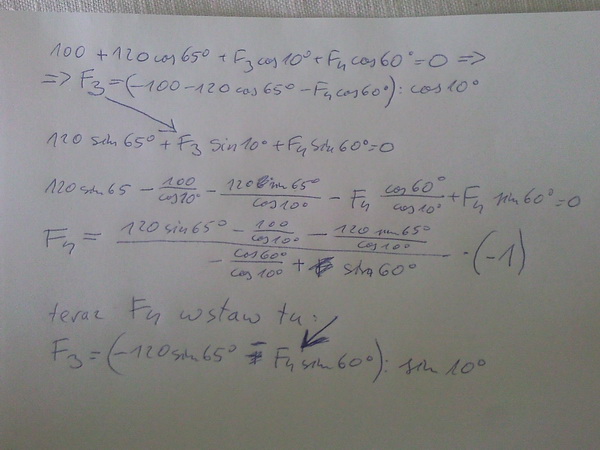 100 + 120 cos 65° + F₃ cos 10° + F₄ cos 60° = 0 =>
=> F₃ = (-100 - 120 cos 65° - F₄ cos 60°) : cos 10°
120 sin 65° + F₃ sin 10° + F₄ sin 60° = 0
120 sin 65 - 100/cos 10° - 120 sin 65°/cos 10° - F₄ cos 60°/cos 10° + F₄ sin 60° = 0
F₄ = (120 sin 65° - 100/cos 10° - 120 sin 65°/cos 10°)/(- cos 60°/cos 10° + sin 60°) · (-1)
teraz F₄ wstaw tu:
F₃ = (-120 sin 65° - F₄ sin 60°) : sin 10°